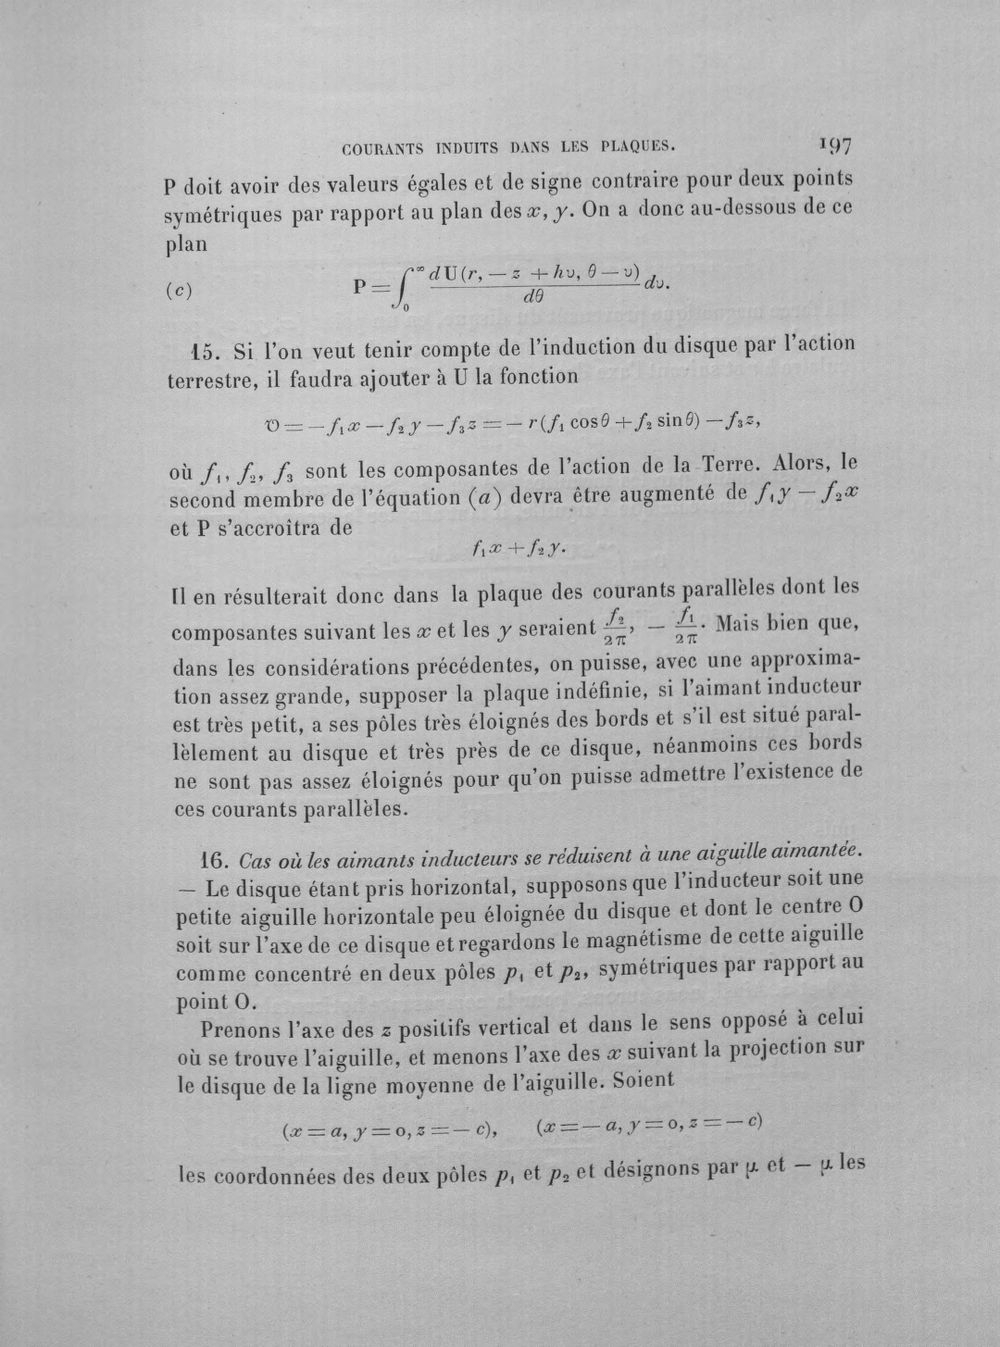 COURANTS INDUITS DANS LES PLAQUES. 197
P doit avoir des valeurs égales et de signe contraire pour deux points
symétriques par rapport au plan des x, y. On a donc au-dessous de ce
plan
(c) P = ∫₀^∞ dU(r, — z + hυ, θ — υ)/dθ dυ.
15. Si l'on veut tenir compte de l'induction du disque par l'action
terrestre, il faudra ajouter à U la fonction
℧ = — f₁x — f₂y — f₃z = — r(f₁ cosθ + f₂ sinθ) — f₃z,
où f₁, f₂, f₃ sont les composantes de l'action de la Terre. Alors, le
second membre de l'équation (a) devra être augmenté de f₁y — f₂x
et P s'accroîtra de
f₁x + f₂y.
Il en résulterait donc dans la plaque des courants parallèles dont les
composantes suivant les x et les y seraient f₂/2π, — f₁/2π. Mais bien que,
dans les considérations précédentes, on puisse, avec une approxima-
tion assez grande, supposer la plaque indéfinie, si l'aimant inducteur
est très petit, a ses pôles très éloignés des bords et s'il est situé paral-
lèlement au disque et très près de ce disque, néanmoins ces bords
ne sont pas assez éloignés pour qu'on puisse admettre l'existence de
ces courants parallèles.
16. Cas où les aimants inducteurs se réduisent à une aiguille aimantée.
— Le disque étant pris horizontal, supposons que l'inducteur soit une
petite aiguille horizontale peu éloignée du disque et dont le centre O
soit sur l'axe de ce disque et regardons le magnétisme de cette aiguille
comme concentré en deux pôles p₁ et p₂, symétriques par rapport au
point O.
Prenons l'axe des z positifs vertical et dans le sens opposé à celui
où se trouve l'aiguille, et menons l'axe des x suivant la projection sur
le disque de la ligne moyenne de l'aiguille. Soient
(x = a, y = 0, z = — c), (x = — a, y = 0, z = — c)
les coordonnées des deux pôles p₁ et p₂ et désignons par μ et — μ les